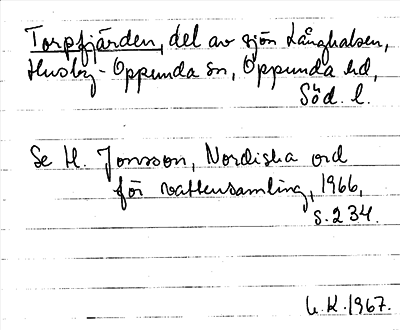 Torpfjärden, del av sjön Långhalsen,
Husby-Oppunda sn, Oppunda hd,
Söd. l.
Se H. Jonsson, Nordiska ord
för vattensamling, 1966,
s. 234.
U.K. 1967.